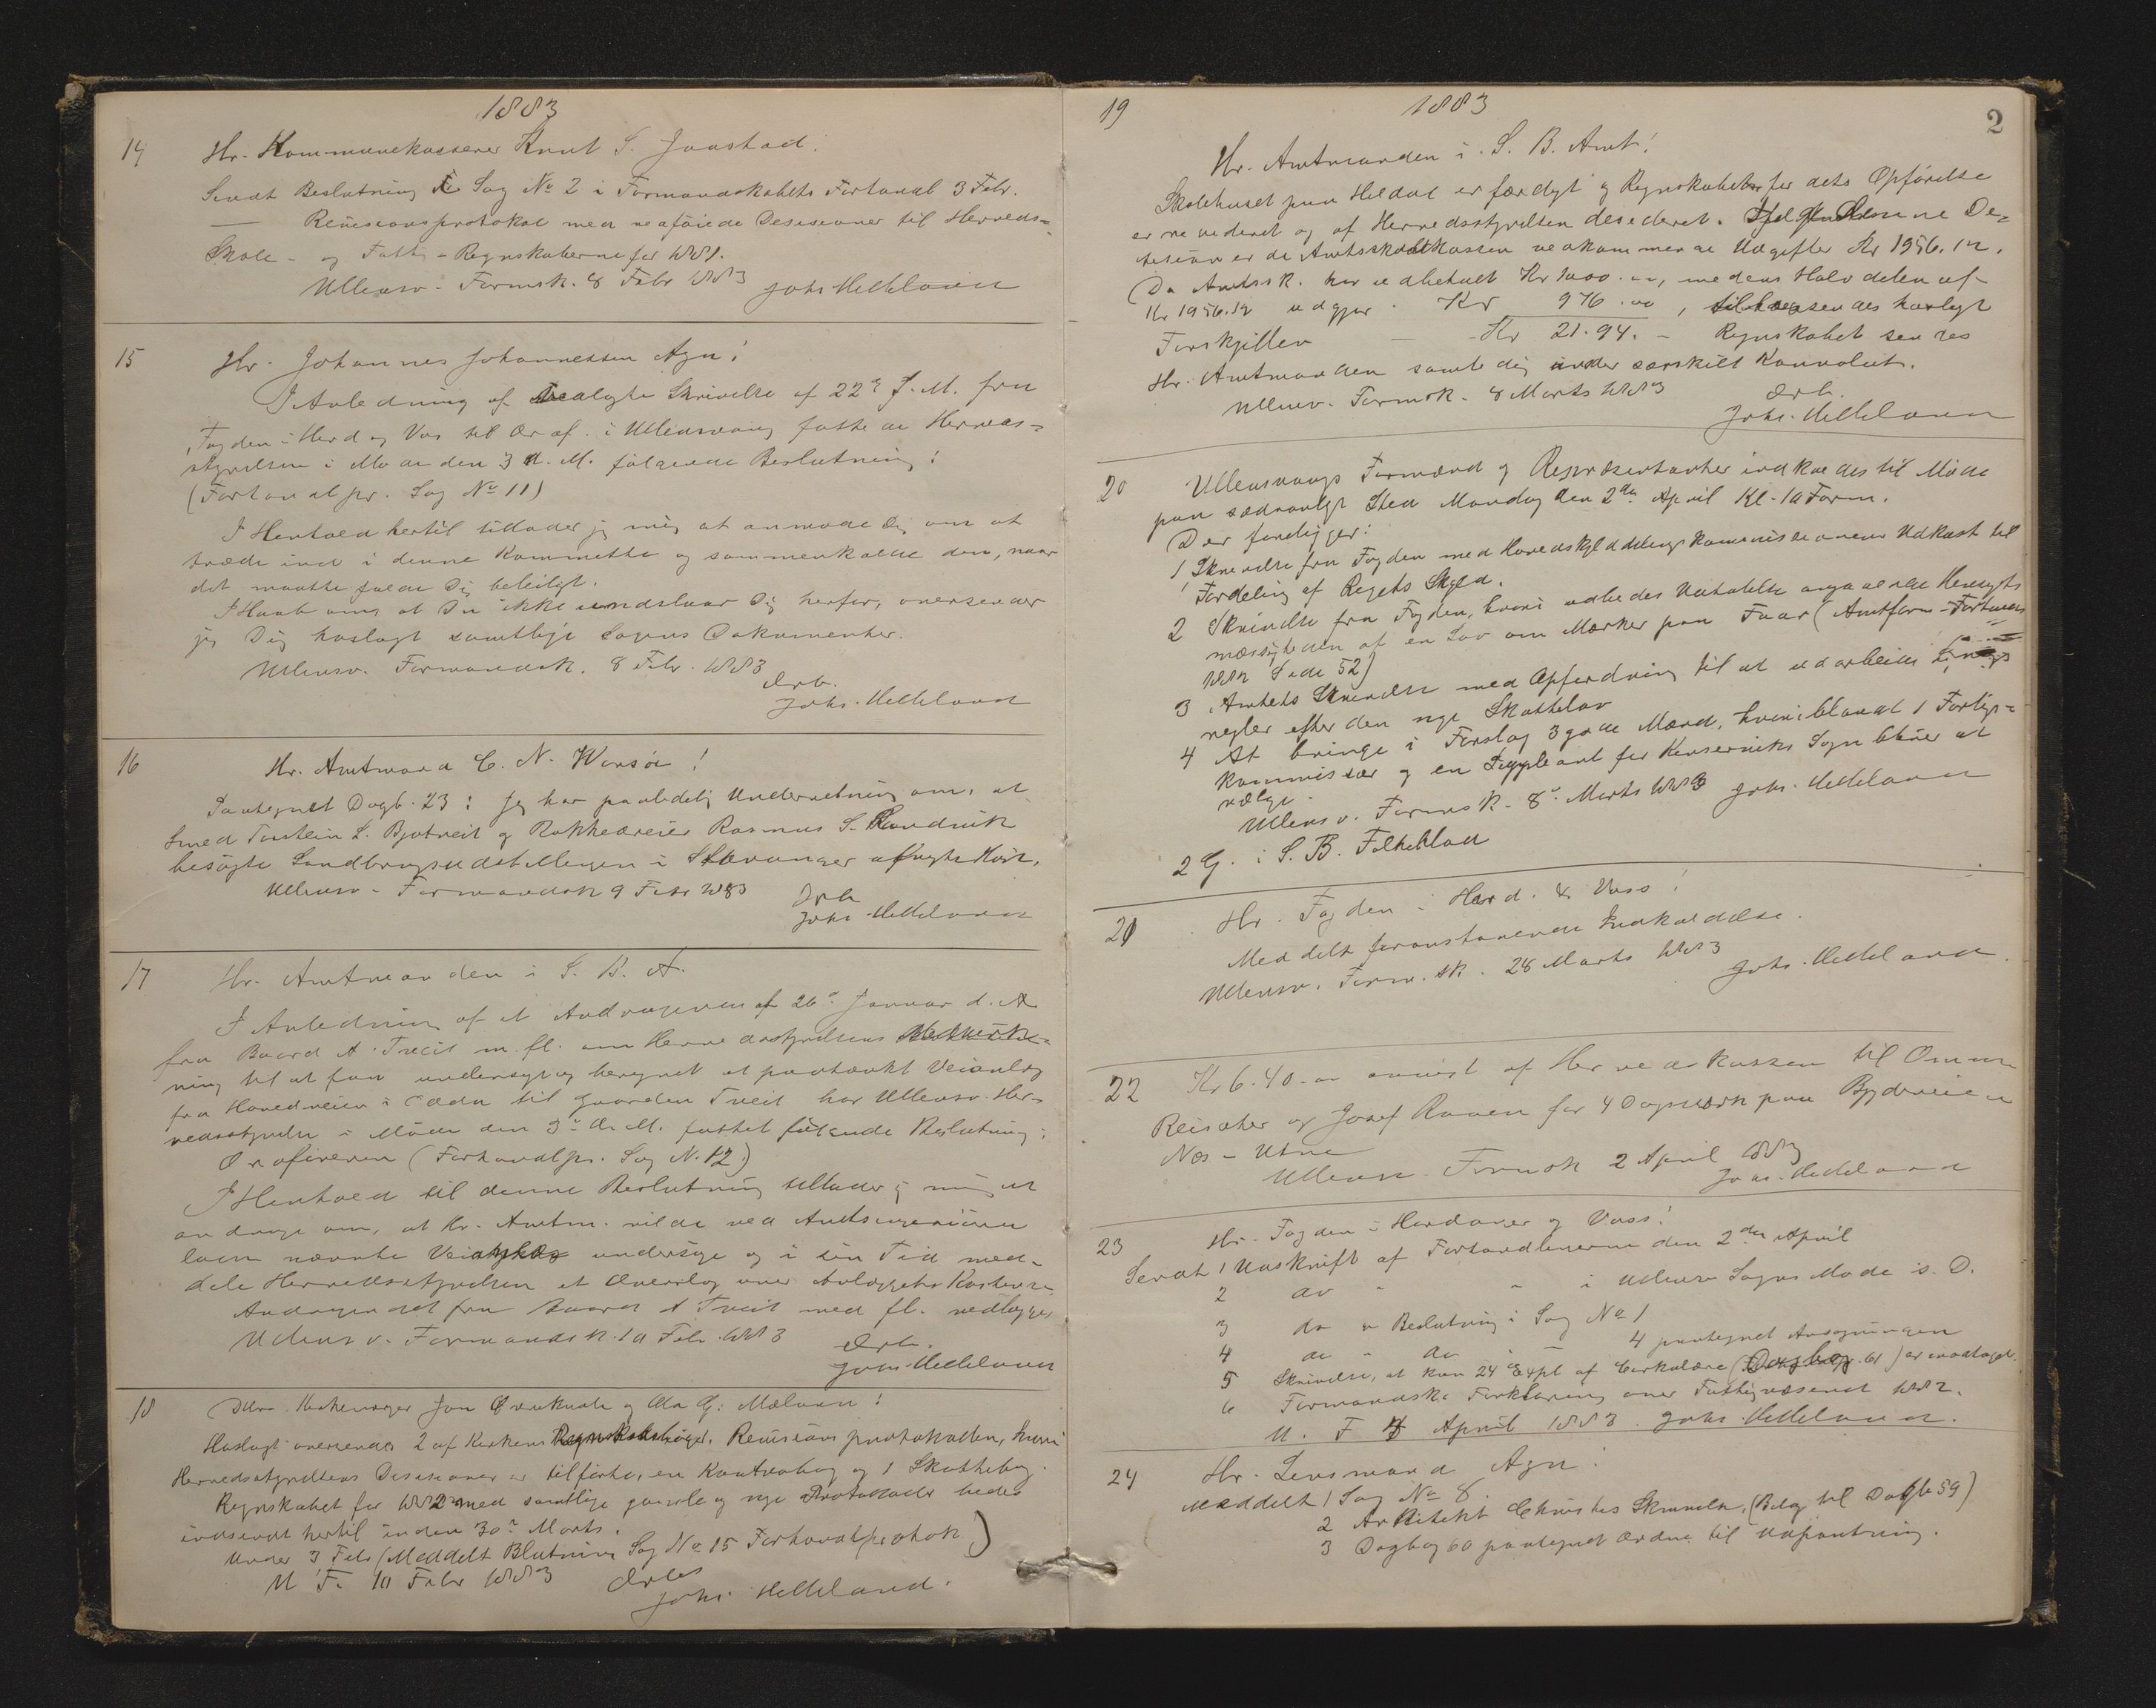 1883
14 Hr. Kommunekasserer Knut S. Jaastad.
Sendt Beslutning i Sag No 2 i Formandskabets Forhandl 3 Febr.
— Revisionsprotokol med vedføiede Desisioner til Herreds=
Skole- og Fattig-Regnskaberne for 1881.
Ullensv. Formsk. 8 Febr 1883 Johs Helleland
15 Hr. Johannes Johannessen Aga!
I Anledning af vedlagte Skrivelse af 22de f. M. fra
Fogden i Hard og Vos til Ordf. i Ullensvang fattede Herreds=
styrelsen i Møde den 3 d. M. følgende Beslutning:
(Forhandlpr. Sag No 11)
I Henhold hertil tillader jeg mig at anmode Dig om at
træde ind i denne Kommitte og sammenkalde den, naar
det maatte falde Dig beleiligt.
I Haab om, at Du ikke undslaar Dig herfor, oversender
jeg Dig hoslagt samtlige Sagens Dokumenter.
Ullensv. Formandsk. 8 Febr. 1883
Ærb.
Johs. Helleland
16 Hr. Amtmand C. N. Worsøe!
Paategnet Dagb. 23: Jeg har paalidelig Underretning om, at
Smed Torstein L. Bjotveit og Rokkedreier Rasmus S. Randvik
besøgte Landbrugsudstillingen i Stavanger afvigte Høst.
Ullensv. Formandsk 9 Febr 1883
Ærb
Johs Helleland
17 Hr. Amtmanden i S. B. A.
I Anledning af et Andragende af 26de Januar d. A.
fra Baard A. Tveit m. fl. om Herredsstyrelsens Medvirk=
ning til at faa undersøgt og beregnet et paatænkt Veianlæg
fra Hovedveien i Odda til Gaarden Tveit har Ullensv. Her=
redsstyrelse i Møde den 3de d. M. fattet følgende Beslutning:
Ordføreren (Forhandlpr. Sag N. 12)
I Henhold til denne Beslutning tillader jeg mig at
andrage om, at Hr. Amtm. vilde ved Amtsingeniøren
lade nævnte Veianlæg undersøge og i sin Tid med=
dele Herredsstyrelsen et Overslag over Anlæggets Kostende
Andragendet fra Baard A Tveit med fl. vedlægges
Ullensv. Formandsk. 10 Febr. 1883
Ærb.
Johs Helleland
18 Dhrr. Kirkeværger Jon og Ola G. Mælann!
Hoslagt oversendes 2 af Kirkens Regnskabsbøger, Revisionsprotokollen, hvori
Herredsstyrelsens Desisioner er tilførte, en Kontrabog og 1 Skattebog.
Regnskabet for 1882 med samtlige gamle og nye Protokoller bedes
indsendt hertil inden 30te Marts.
Under 3 Febr (Meddelt Blutning Sag No 15 Forhandlprotok)
U F. 10 Febr 1883
Ærb
Johs. Helleland.
2
1883
19 Hr. Amtmanden i S. B. Amt!
Skolehuset paa Heldal er færdigt og Regnskabet for dets Opførelse
er revideret og af Herredsstyrelsen desideret. Ifølge De=
sision er de Amtsskolekassen vedkommende Udgifter Kr 1956.12.
Da Amtssk. har udbetalt Kr 1000.00, medens Halvdelen af
Kr 1956.12 udgjør Kr 978.06, tilbagesendes hoslagt
Forskjellen — Kr 21.94. — Regnskabet sendes
Hr. Amtmanden samtidig under særskilt Konvolut.
Ullensv. Formsk. 8 Marts 1883
Ærb.
Johs. Helleland
20 Ullensvangs Formænd og Repræsentanter indkaldes til Møde
paa sædvanligt Sted Mandag den 2den April Kl. 10 Form.
Der foreligger:
1 Skrivelse fra Fogden med Hovedskylddelingskommissionens Udkast til
Fordeling af Rigets Skyld.
2 Skrivelse fra Fogden, hvori udbedes Udtalelse angaaende Hensigts
mæssigheden af en Lov om Mærker paa Faar (Amtsform-Forhandl
1882 Side 52)
3 Amtets Skrivelse med Opfordring til at udarbeide Lignings
regler efter den nye Skattelov
4 At bringe i Forslag 3 gode Mænd, hvoriblandt 1 Forligs=
kommissær og en Suppleant for Kinserviks Sogn bliver at
vælge.
Ullensv. Formsk. 8de Marts 1883 Johs. Helleland
2 G. i S. B. Folkeblad
21 Hr. Fogden i Hard. & Voss!
Meddelt foranstaaende Indkaldelse.
Ullensv. Form.sk. 28 Marts 1883
Johs. Helleland.
22 Kr 6.40 anvist af Herredskassen til
Reisæter og Josef Raaen for 4 Dagsværk paa Bygdeveien
Næs-Utne
Ullensv. Formsk 2 April 1883
Johs. Helleland
23 Hr. Fogden i Hardanger og Voss!
Sendt 1 Udskrift af Forhandlingerne den 2den April
2 do " " i Ullensv Sogns Møde s. D.
3 do " Beslutning i Sag No 1
4 do " do " " 4 paategnet Ansøgningen
5 Skrivelse, at kun 24 Expl af Cirkulære (Dagbog. 61) er modtaget.
6 Formandsk. Forklaring over Fattigvæsenet 1882.
U. F 7 April 1883. Johs Helleland.
24 Hr. Lensmand Aga!
Meddelt 1 Sag No 8.
2 Arkitekt Christies Skrivelse. (Bilag til Dagb 59)
3 Dagbog 60 paategnet Ordre til Udpantning.